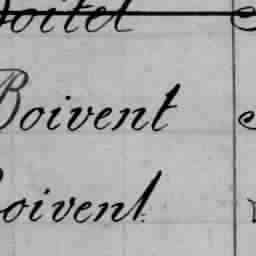 Boitel
Boivent
Boivent